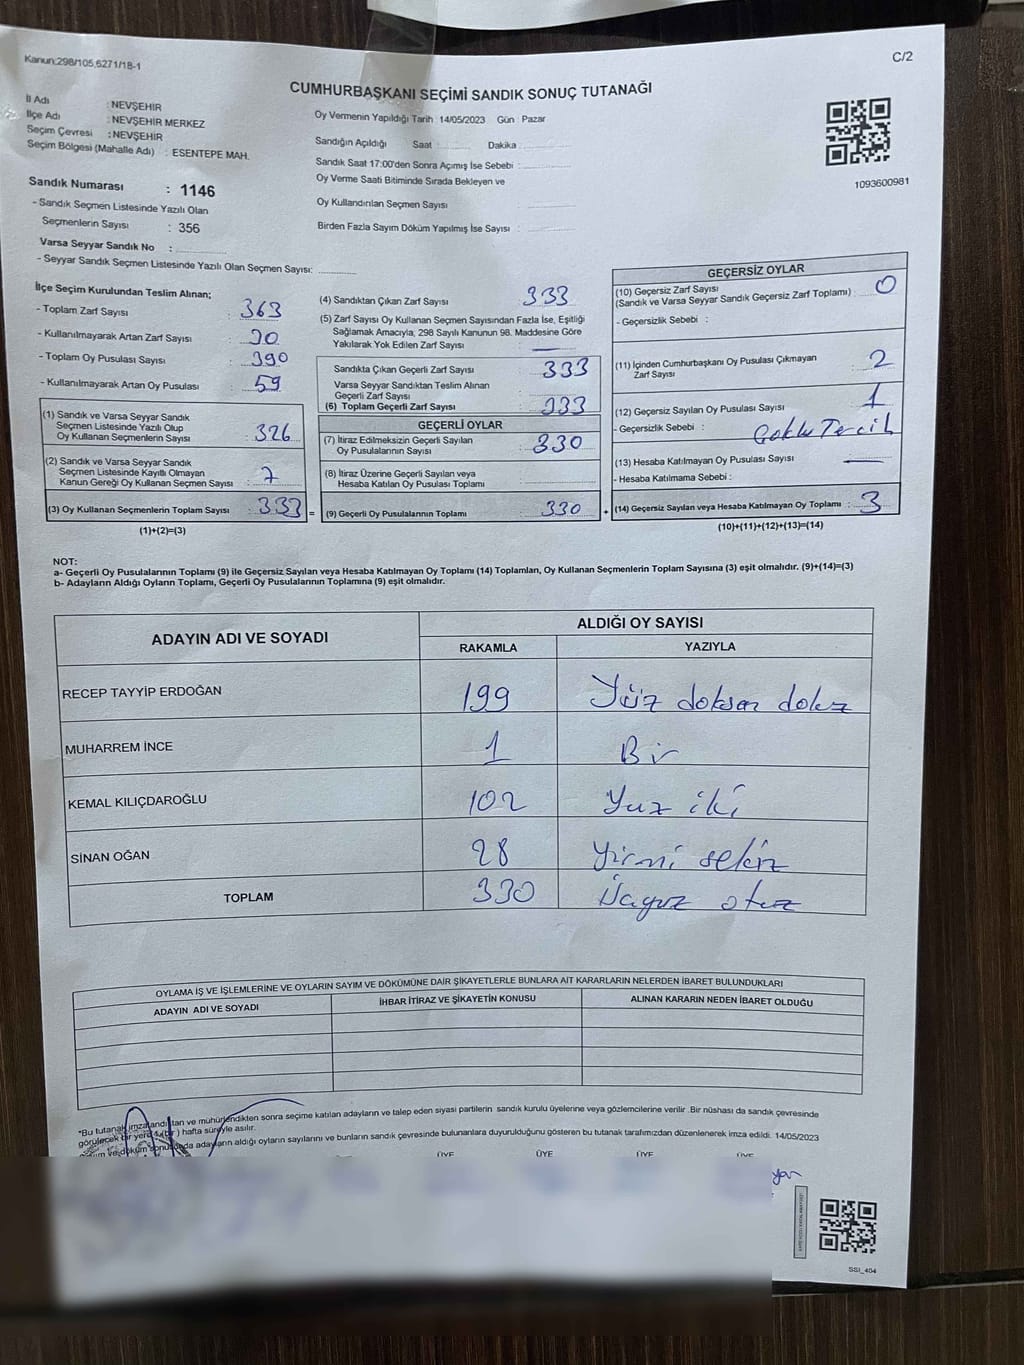 Kanun:298/105,6271/18-1
C/2
CUMHURBAŞKANI SEÇİMİ SANDIK SONUÇ TUTANAĞI
İl Adı : NEVŞEHİR
İlçe Adı : NEVŞEHİR MERKEZ
Seçim Çevresi : NEVŞEHİR
Seçim Bölgesi (Mahalle Adı) : ESENTEPE MAH.
Oy Vermenin Yapıldığı Tarih : 14/05/2023 Gün : Pazar
Sandığın Açıldığı Saat : Dakika :
Sandık Saat 17:00'den Sonra Açımış İse Sebebi :
Oy Verme Saati Bitiminde Sırada Bekleyen ve
Oy Kullandırılan Seçmen Sayısı :
Birden Fazla Sayım Döküm Yapılmış İse Sayısı :
1093600981
Sandık Numarası : 1146
- Sandık Seçmen Listesinde Yazılı Olan
Seçmenlerin Sayısı : 356
Varsa Seyyar Sandık No :
- Seyyar Sandık Seçmen Listesinde Yazılı Olan Seçmen Sayısı:
İlçe Seçim Kurulundan Teslim Alınan;
- Toplam Zarf Sayısı : 363
- Kullanılmayarak Artan Zarf Sayısı : 30
- Toplam Oy Pusulası Sayısı : 390
- Kullanılmayarak Artan Oy Pusulası : 59
(1) Sandık ve Varsa Seyyar Sandık
Seçmen Listesinde Yazılı Olup
Oy Kullanan Seçmenlerin Sayısı : 326
(2) Sandık ve Varsa Seyyar Sandık
Seçmen Listesinde Kayıtlı Olmayan
Kanun Gereği Oy Kullanan Seçmen Sayısı : 7
(3) Oy Kullanan Seçmenlerin Toplam Sayısı : 333 =
(1)+(2)=(3)
(4) Sandıktan Çıkan Zarf Sayısı : 333
(5) Zarf Sayısı Oy Kullanan Seçmen Sayısından Fazla İse, Eşitliği
Sağlamak Amacıyla, 298 Sayılı Kanunun 98. Maddesine Göre
Yakılarak Yok Edilen Zarf Sayısı :
Sandıkta Çıkan Geçerli Zarf Sayısı : 333
Varsa Seyyar Sandıktan Teslim Alınan
Geçerli Zarf Sayısı :
(6) Toplam Geçerli Zarf Sayısı : 333
GEÇERLİ OYLAR
(7) İtiraz Edilmeksizin Geçerli Sayılan
Oy Pusulalarının Sayısı : 330
(8) İtiraz Üzerine Geçerli Sayılan veya
Hesaba Katılan Oy Pusulası Toplamı :
(9) Geçerli Oy Pusulalarının Toplamı : 330 +
GEÇERSİZ OYLAR
(10) Geçersiz Zarf Sayısı
(Sandık ve Varsa Seyyar Sandık Geçersiz Zarf Toplamı) : 0
- Geçersizlik Sebebi :
(11) İçinden Cumhurbaşkanı Oy Pusulası Çıkmayan
Zarf Sayısı : 2
(12) Geçersiz Sayılan Oy Pusulası Sayısı : 1
- Geçersizlik Sebebi : Çoklu Tercih
(13) Hesaba Katılmayan Oy Pusulası Sayısı :
- Hesaba Katılmama Sebebi :
(14) Geçersiz Sayılan veya Hesaba Katılmayan Oy Toplamı : 3
(10)+(11)+(12)+(13)=(14)
NOT:
a- Geçerli Oy Pusulalarının Toplamı (9) ile Geçersiz Sayılan veya Hesaba Katılmayan Oy Toplamı (14) Toplamları, Oy Kullanan Seçmenlerin Toplam Sayısına (3) eşit olmalıdır. (9)+(14)=(3)
b- Adayların Aldığı Oyların Toplamı, Geçerli Oy Pusulalarının Toplamına (9) eşit olmalıdır.
ADAYIN ADI VE SOYADI ALDIĞI OY SAYISI
RAKAMLA YAZIYLA
RECEP TAYYİP ERDOĞAN 199 Yüz doksan dokuz
MUHARREM İNCE 1 Bir
KEMAL KILIÇDAROĞLU 102 Yuz iki
SİNAN OĞAN 28 Yirmi sekiz
TOPLAM 330 Üçyuz otuz
OYLAMA İŞ VE İŞLEMLERİNE VE OYLARIN SAYIM VE DÖKÜMÜNE DAİR ŞİKAYETLERLE BUNLARA AİT KARARLARIN NELERDEN İBARET BULUNDUKLARI
ADAYIN ADI VE SOYADI İHBAR İTİRAZ VE ŞİKAYETİN KONUSU ALINAN KARARIN NEDEN İBARET OLDUĞU
*Bu tutanak imzalandıktan ve mühürlendikten sonra seçime katılan adayların ve talep eden siyasi partilerin sandık kurulu üyelerine veya gözlemcilerine verilir .Bir nüshası da sandık çevresinde
görülecek bir yere 1 (bir) hafta süreyle asılır.
ve döküm sonucunda adayların aldığı oyların sayılarını ve bunların sandık çevresinde bulunanlara duyurulduğunu gösteren bu tutanak tarafımızdan düzenlenerek imza edildi. 14/05/2023
ÜYE ÜYE ÜYE ÜYE
SSI_404